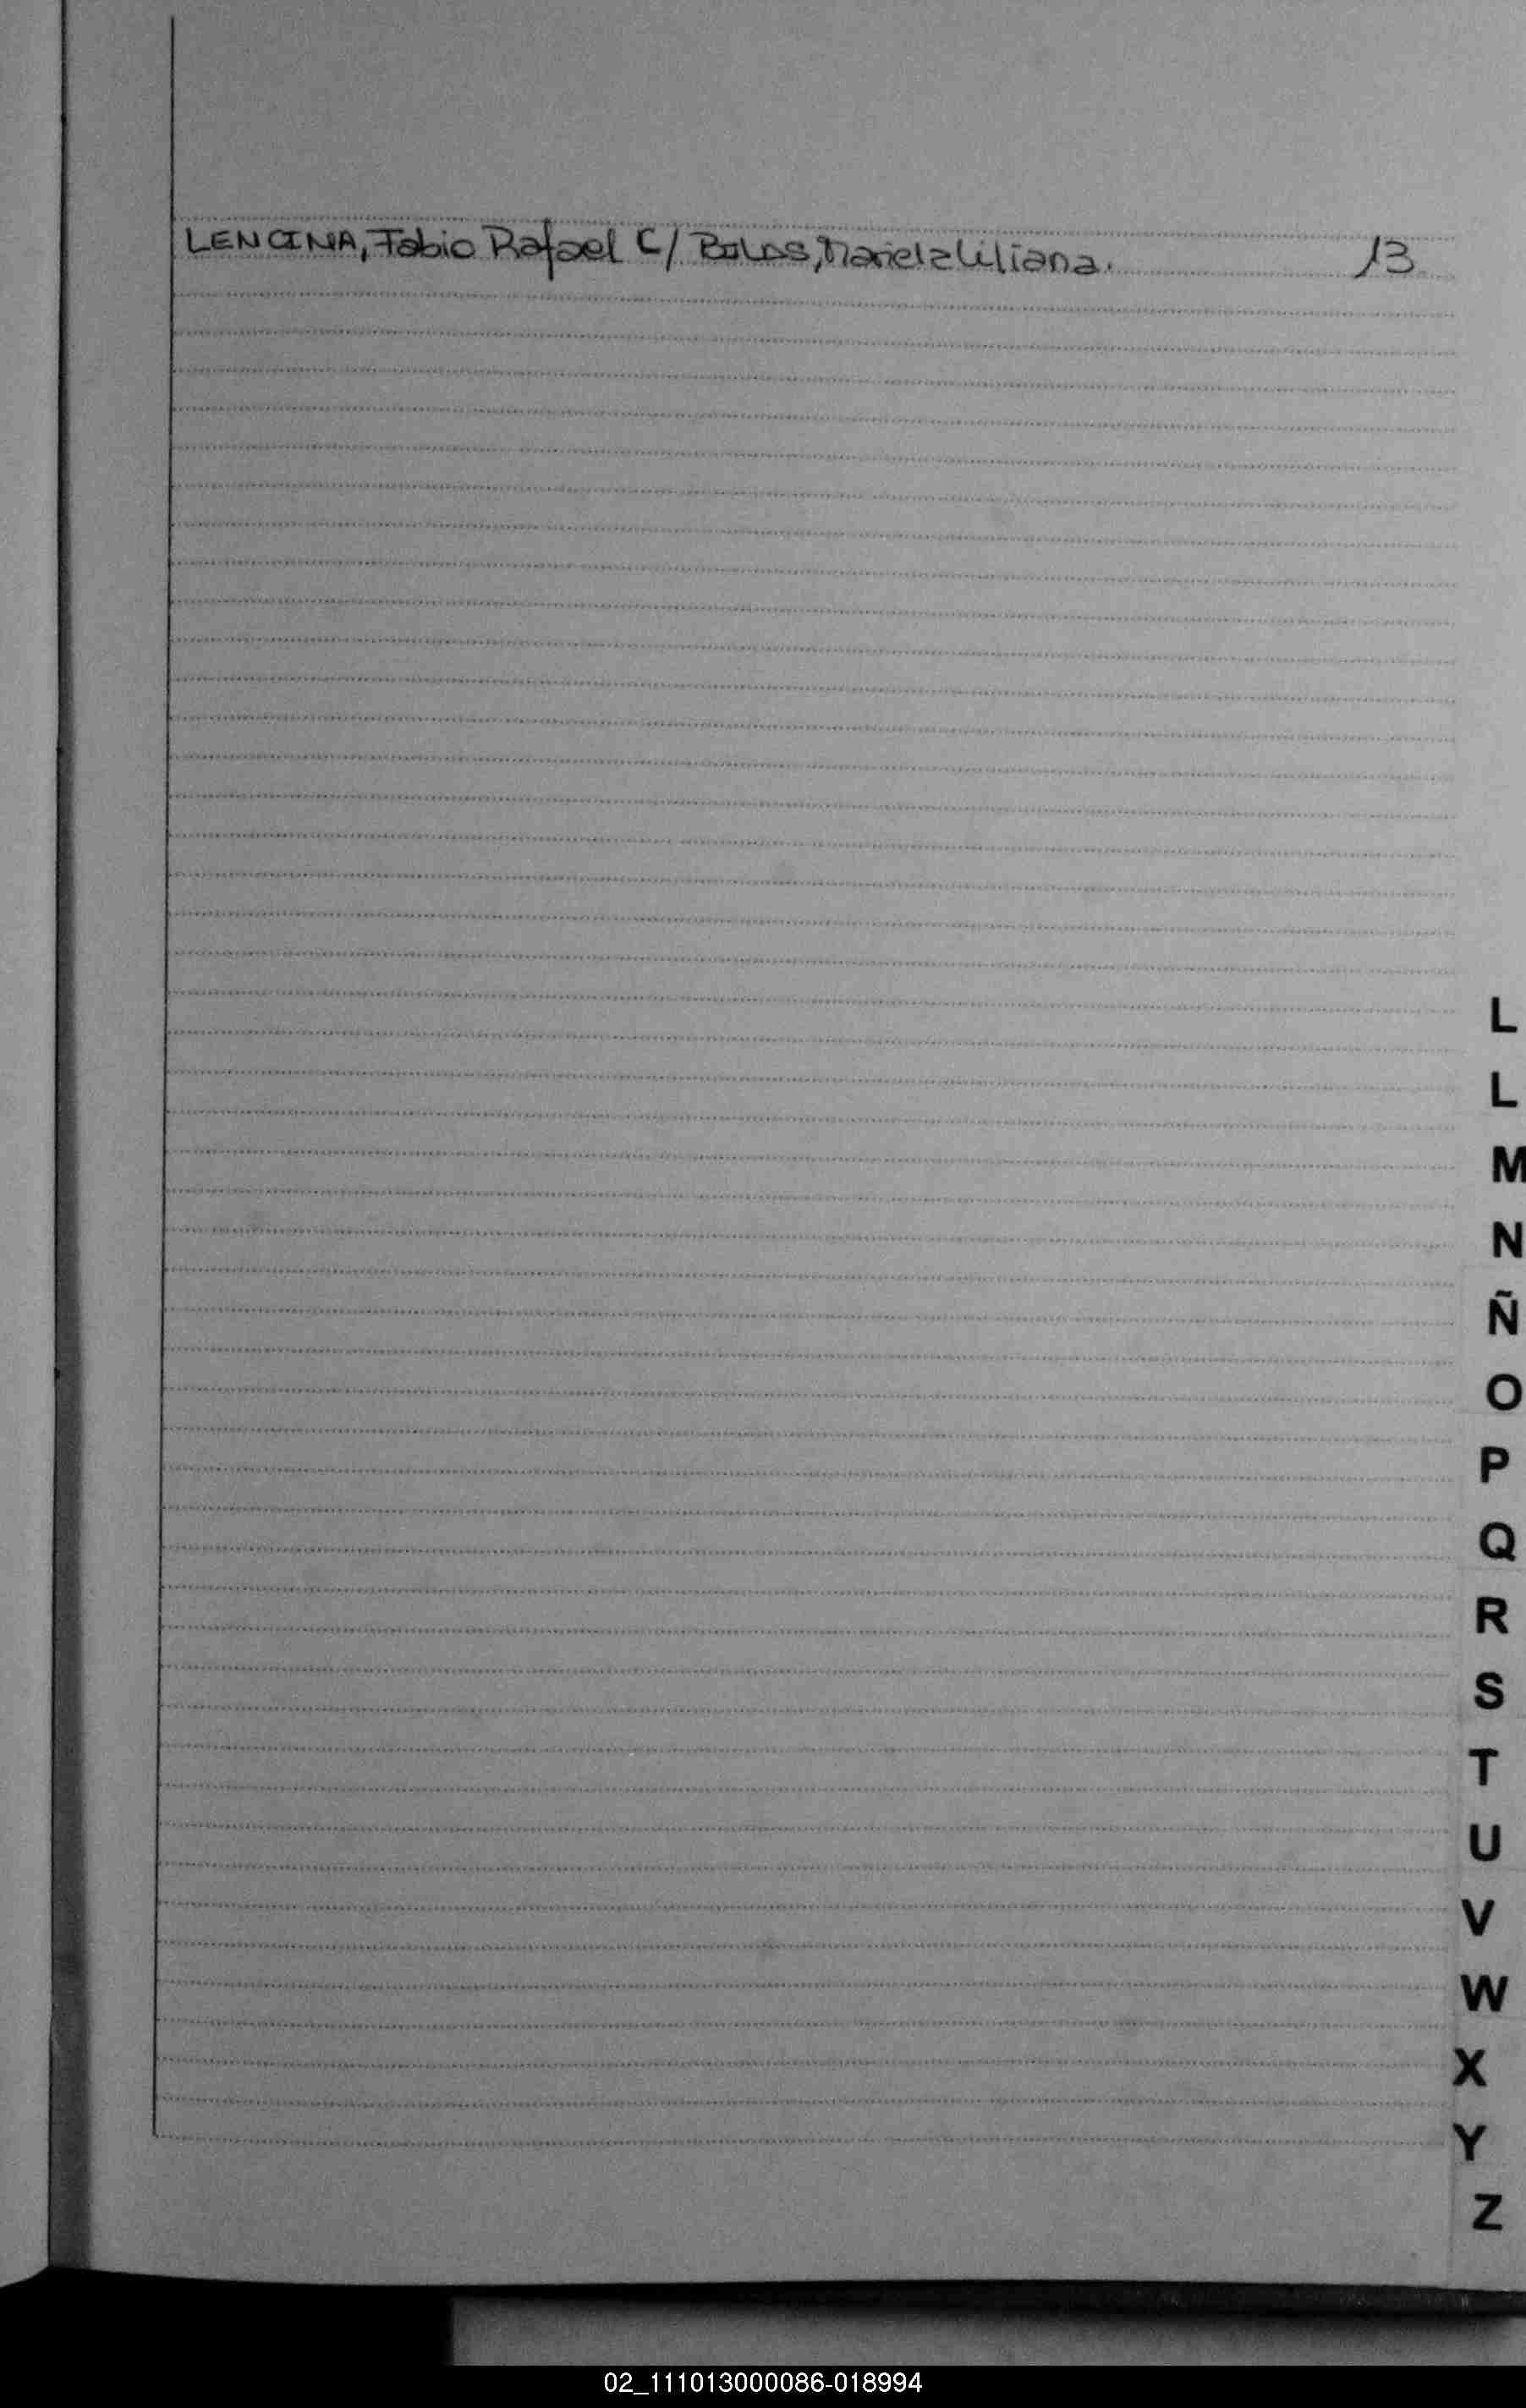 LENCINA, Fabio Rafael C/ Mariela Liliana. 13
L
L
M
N
Ñ
O
P
Q
R
S
T
U
V
W
X
Y
Z
02_111013000086-018994